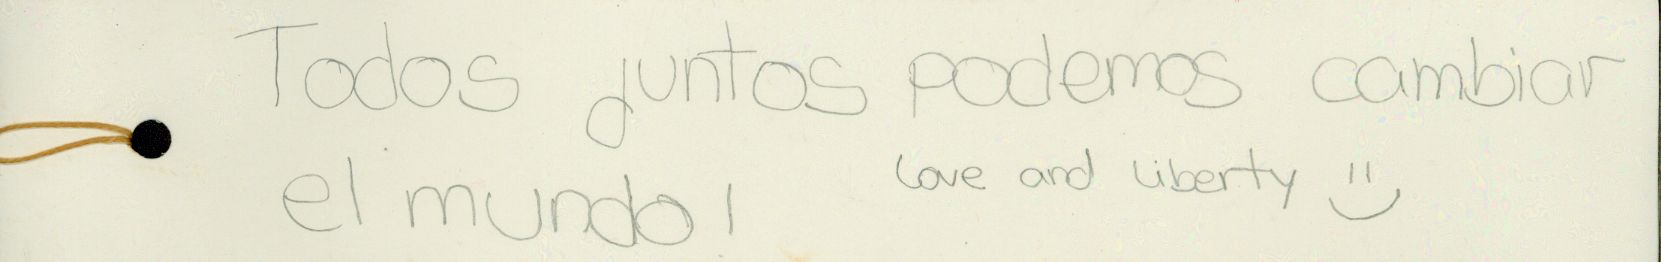 Todos juntos podemos cambiar
el mundo!
Love and Liberty :)